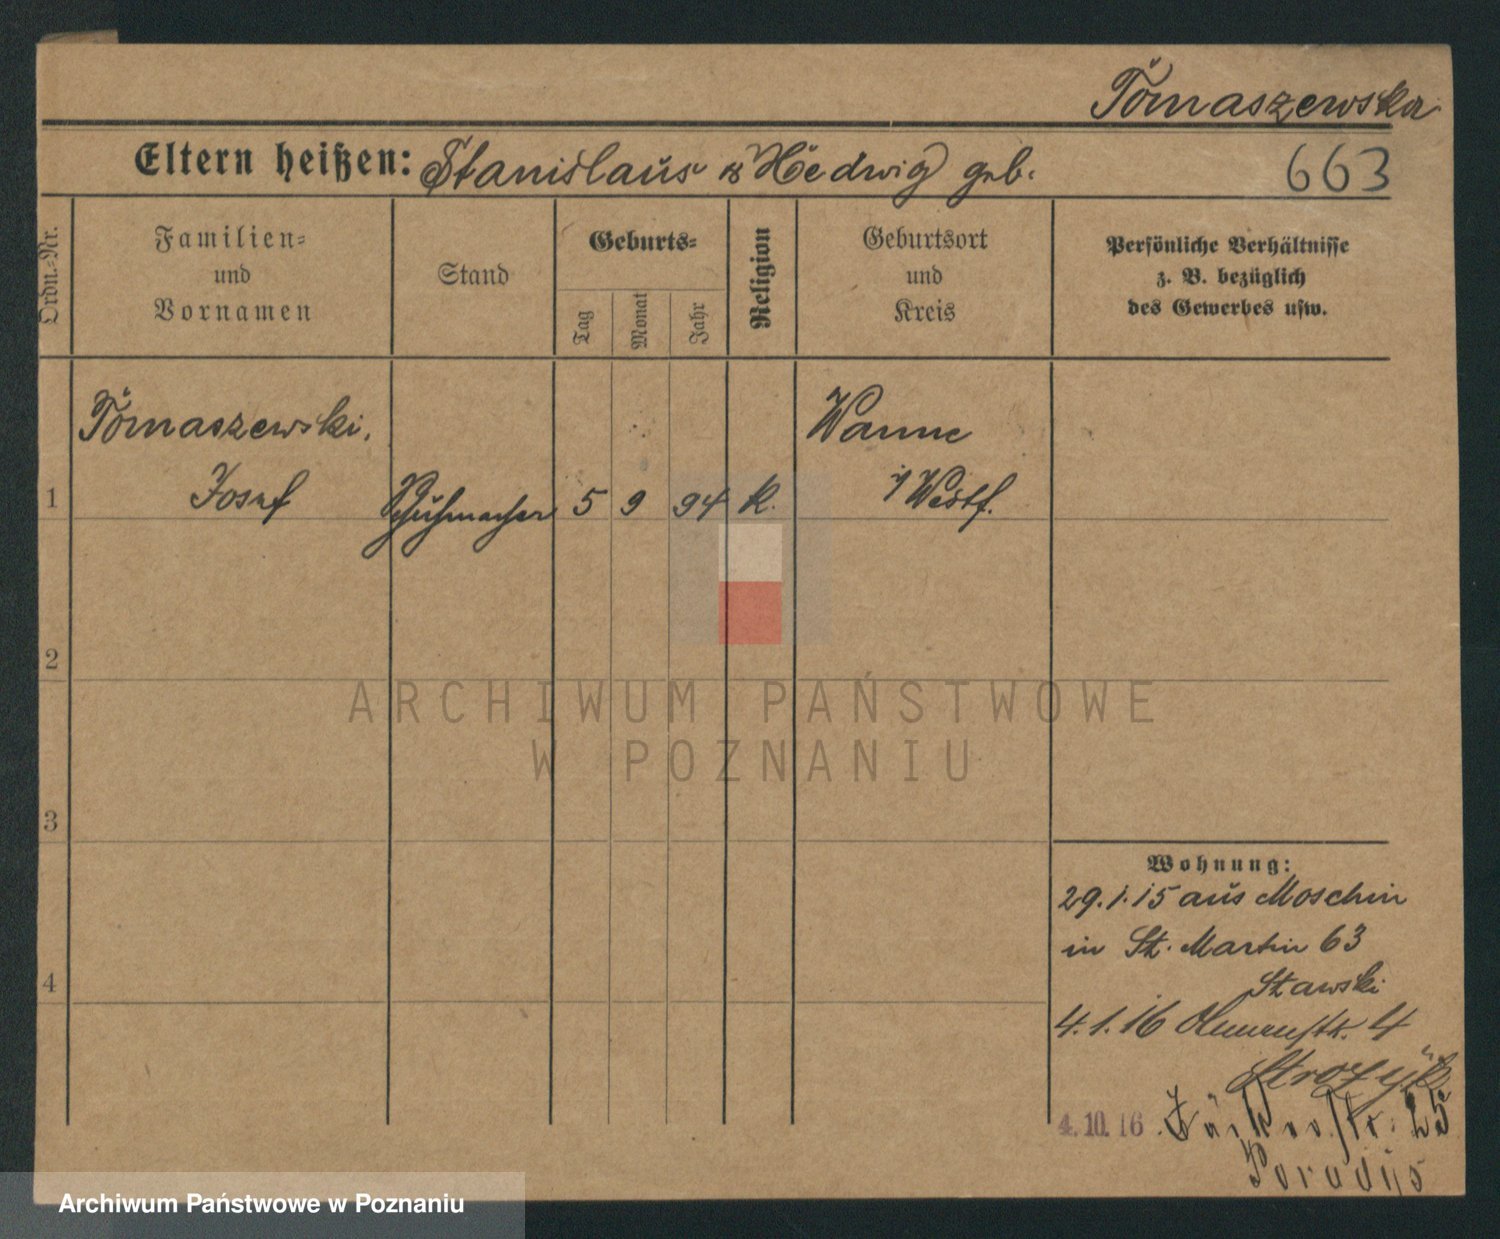 Tomaszewska
Eltern heißen: Stanislaus u Hedwig geb.
663
Ordn.-Nr.
Familien-
und
Vornamen
Stand
Geburts-
Tag
Monat
Jahr
Religion
Geburtsort
und
Kreis
Persönliche Verhältnisse
z. B. bezüglich
des Gewerbes usw.
Tomaszewski,
Wanne
1 Josef Schuhmacher 5 9 94 k. i/Westf.
2
ARCHIWUM PAŃSTWOWE
W POZNANIU
3
Wohnung:
29.1.15 aus Moschin
in St. Martin 63
4
Stawski
4.1.16 4
4.10.16 25
Archiwum Państwowe w Poznaniu